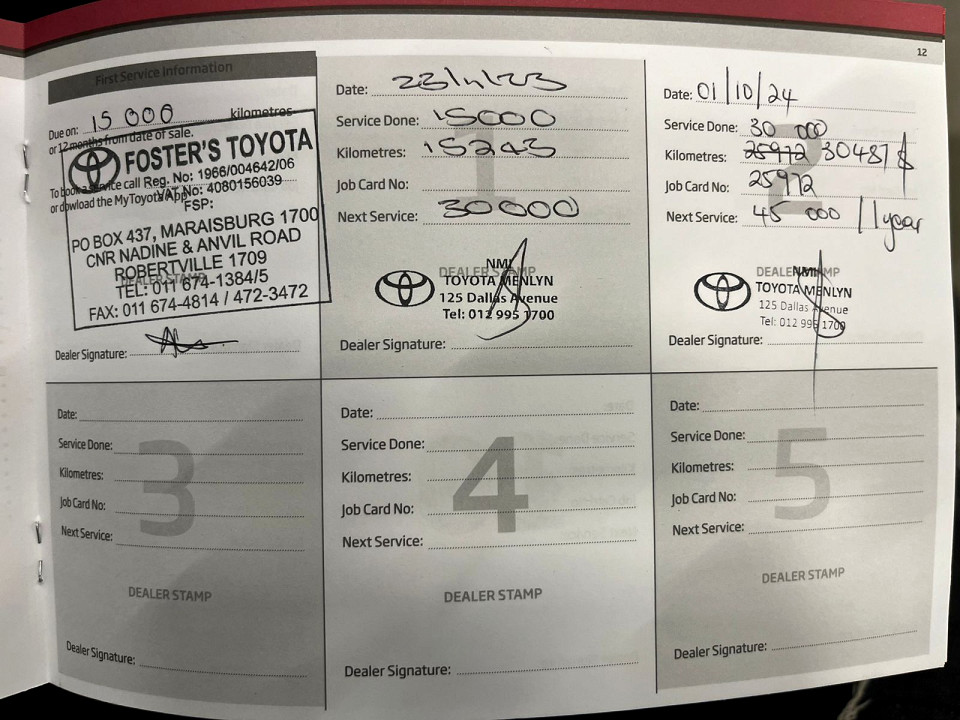 12
First Service Information
Due on: 15 000 kilometres
or 12 months from date of sale.
FOSTER'S TOYOTA
To book a service call
or dowload the MyToyota App
Reg. No: 1966/004642/06
VAT No: 4080156039
FSP:
PO BOX 437, MARAISBURG 1700
CNR NADINE & ANVIL ROAD
ROBERTVILLE 1709
DEALER STAMP
TEL: 011 674-1384/5
FAX: 011 674-4814 / 472-3472
Dealer Signature:
1
Date:
Service Done: 15000
Kilometres: 15243
Job Card No:
Next Service: 30000
DEALER STAMP
NMI
TOYOTA MENLYN
125 Dallas Avenue
Tel: 012 995 1700
Dealer Signature:
2
Date: 01/10/24
Service Done: 30 000
Kilometres: 25972 30487
Job Card No: 25972
Next Service: 45 000 / 1 year
DEALER STAMP
NMI
TOYOTA MENLYN
125 Dallas Avenue
Tel: 012 995 1700
Dealer Signature:
3
Date:
Service Done:
Kilometres:
Job Card No:
Next Service:
DEALER STAMP
Dealer Signature:
4
Date:
Service Done:
Kilometres:
Job Card No:
Next Service:
DEALER STAMP
Dealer Signature:
5
Date:
Service Done:
Kilometres:
Job Card No:
Next Service:
DEALER STAMP
Dealer Signature: